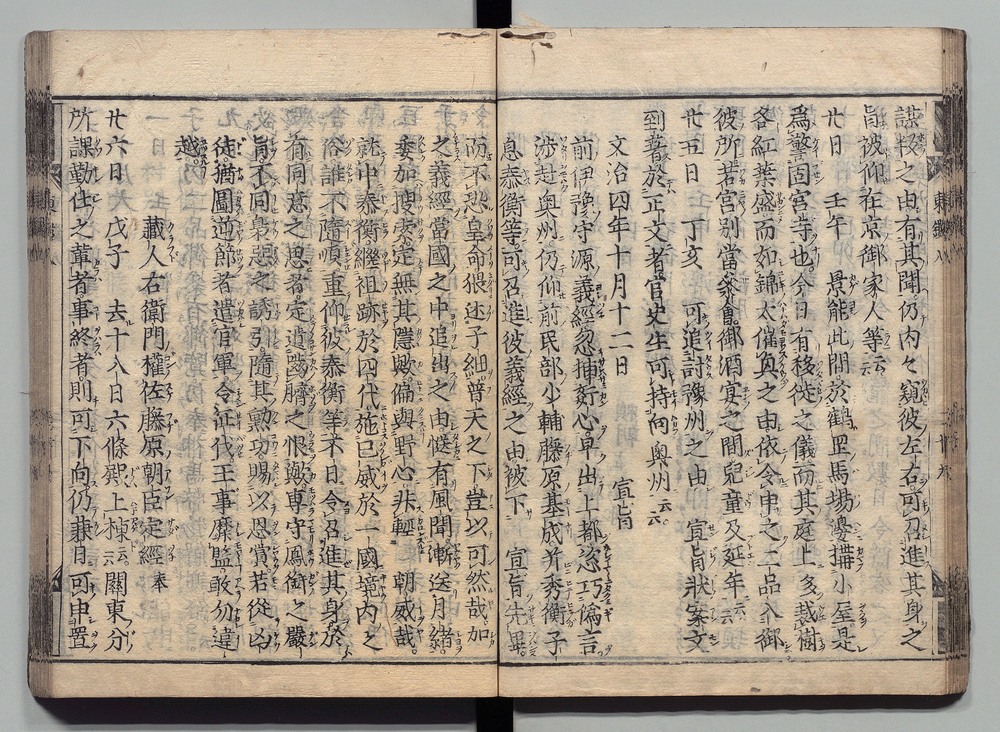 謀叛之由有其聞仍内々窺彼左右可召進其身之
旨被仰在京御家人等云云
廿日　壬午　景能此間於鶴罡馬場邊搆小屋是
爲警固宮寺也今日有移徙之儀而其庭上多栽樹
各紅葉盛而如錦太催興之由依令申之二品入御
彼所若宮別當參會御酒宴之間兒童及延年云云
廿五日　丁亥　可追討豫州之由　宣旨狀案文
到著於正文者官史生可持向奥州云云
文治四年十月十二日　宣旨
前伊豫守源義經忽插奸心早出上都恣巧偽言
渉赴奥州仍仰前民部少輔藤原基成并秀衡子
息泰衡等可召進彼義經之由被下　宣旨先畢
而不恐皇命猥述子細普天之下豈以可然哉加
之義經當國之中追出之由慥有風聞漸送月緒
委加搜索定無其隱歟偏與野心非輕　朝威哉
就中泰衡繼祖跡於四代施己威於一國境内之
俗誰不隨順重仰彼泰衡等不日令召進其身於
有同意之思者定遺噬臍之恨歟專守鳳銜之嚴
旨不同梟惡之誘引隨其勲功賜以恩賞若從凶
徒猶圖逆節者遣官軍令征伐王事靡盬敢勿違
越
藏人右衛門權佐藤原朝臣定經奉
廿六日　戊子　去十八日六條殿上棟云云關東分
所課勤仕之輩者事終者則可下向仍兼日可申置
東鑑八